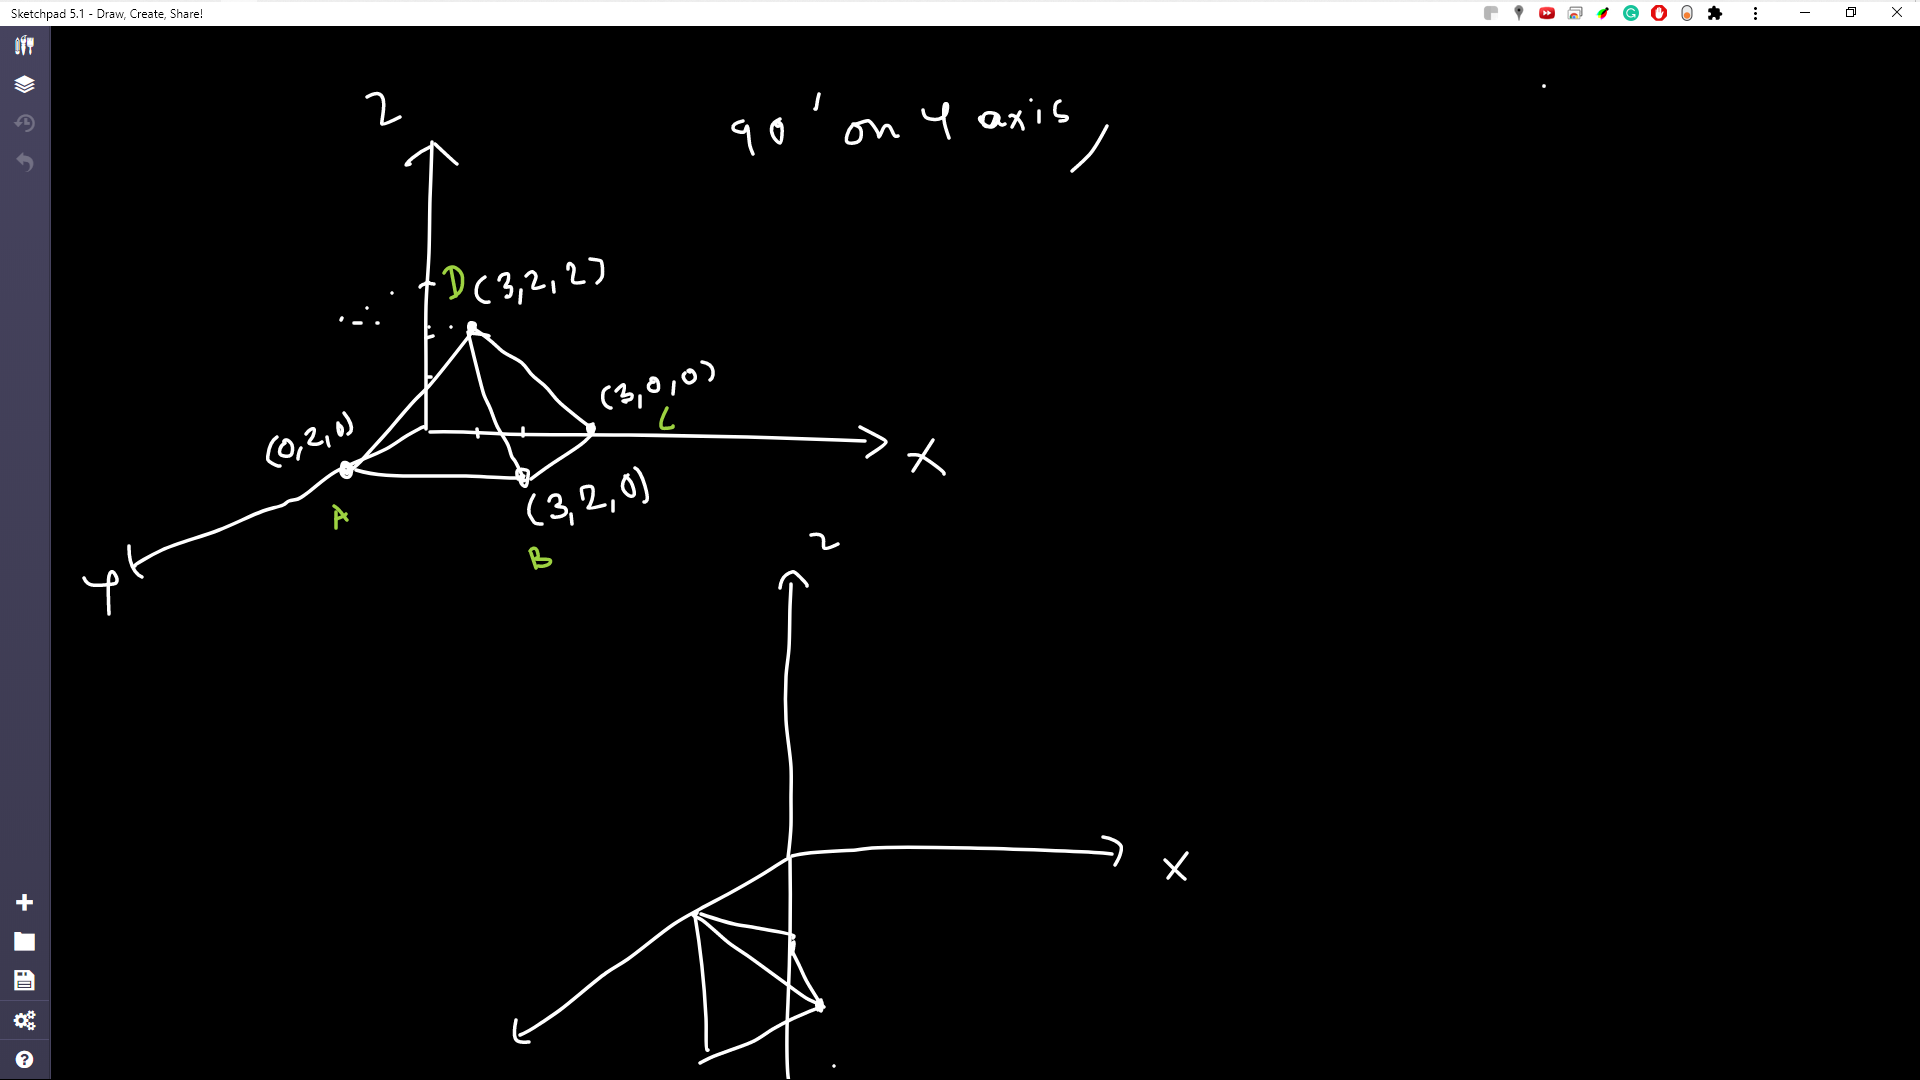 Sketchpad 5.1 - Draw, Create, Share!
Z
90' on Y axis,
D (3,2,2)
(3,0,0)
C
(0,2,0)
X
A
(3,2,0)
B
Y
Z
X